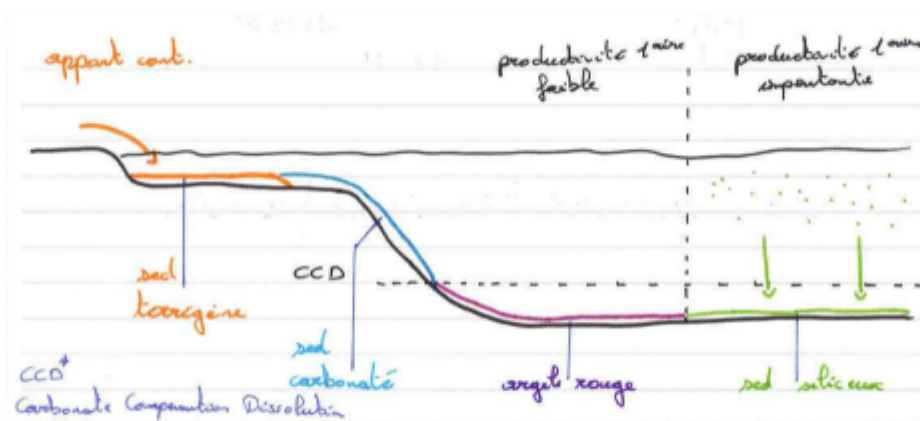 appart cont.
productivité 1aire
faible
productivité 1aire
importante
CCD
sed
terrigène
sed
carbonaté
argile rouge
sed siliceux
CCD*
Carbonate Compensation Dissolution